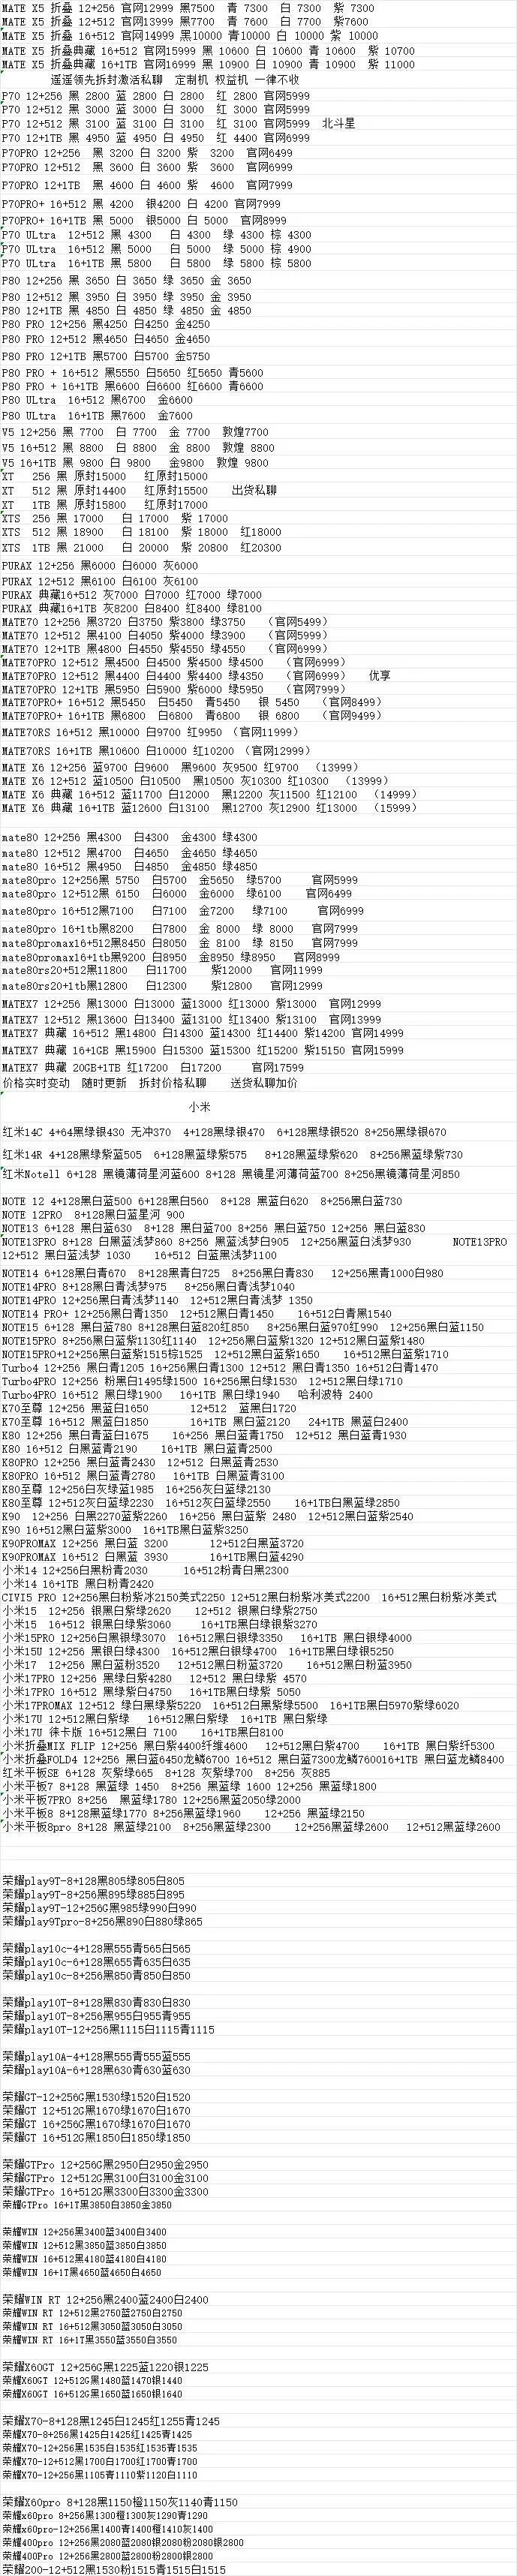 MATE X5 折叠 12+256 官网12999 黑7500 青 7300 白 7300 紫 7300
MATE X5 折叠 12+512 官网13999 黑7700 青 7600 白 7700 紫7600
MATE X5 折叠 16+512 官网14999 黑10000 青10000 白 10000 紫 10000
MATE X5 折叠典藏 16+512 官网15999 黑 10600 白 10600 青 10600 紫 10700
MATE X5 折叠典藏 16+1TB 官网16999 黑 10900 白 10900 青 10900 紫 11000
遥遥领先拆封激活私聊 定制机 权益机 一律不收
P70 12+256 黑 2800 蓝 2800 白 2800 红 2800 官网5999
P70 12+512 黑 3000 蓝 3000 白 3000 红 3000 官网5999
P70 12+512 黑 3100 蓝 3100 白 3100 红 3100 官网5999 北斗星
P70 12+1TB 黑 4950 蓝 4950 白 4950 红 4400 官网6999
P70PRO 12+256 黑 3200 白 3200 紫 3200 官网6499
P70PRO 12+512 黑 3600 白 3600 紫 3600 官网6999
P70PRO 12+1TB 黑 4600 白 4600 紫 4600 官网7999
P70PRO+ 16+512 黑 4200 银4200 白 4200 官网7999
P70PRO+ 16+1TB 黑 5000 银5000 白 5000 官网8999
P70 ULtra 12+512 黑 4300 白 4300 绿 4300 棕 4300
P70 ULtra 16+512 黑 5000 白 5000 绿 5000 棕 4900
P70 ULtra 16+1TB 黑 5800 白 5800 绿 5800 棕 5800
P80 12+256 黑 3650 白 3650 绿 3650 金 3650
P80 12+512 黑 3950 白 3950 绿 3950 金 3950
P80 12+1TB 黑 4850 白 4850 绿 4850 金 4850
P80 PRO 12+256 黑4250 白4250 金4250
P80 PRO 12+512 黑4650 白4650 金4650
P80 PRO 12+1TB 黑5700 白5700 金5750
P80 PRO + 16+512 黑5550 白5650 红5650 青5600
P80 PRO + 16+1TB 黑6600 白6600 红6600 青6600
P80 ULtra 16+512 黑6700 金6600
P80 ULtra 16+1TB 黑7600 金7600
V5 12+256 黑 7700 白 7700 金 7700 敦煌7700
V5 16+512 黑 8800 白 8800 金 8800 敦煌 8800
V5 16+1TB 黑 9800 白 9800 金9800 敦煌 9800
XT 256 黑 原封15000 红原封15000
XT 512 黑 原封14400 红原封15500 出货私聊
XT 1TB 黑 原封15800 红原封17000
XTS 256 黑 17000 白 17000 紫 17000
XTS 512 黑 18900 白 18100 紫 18000 红18000
XTS 1TB 黑 21000 白 20000 紫 20800 红20300
PURAX 12+256 黑6000 白6000 灰6000
PURAX 12+512 黑6100 白6100 灰6100
PURAX 典藏16+512 灰7000 白7000 红7000 绿7000
PURAX 典藏16+1TB 灰8200 白8400 红8400 绿8100
MATE70 12+256 黑3720 白3750 紫3800 绿3750 （官网5499）
MATE70 12+512 黑4100 白4050 紫4000 绿3900 （官网5999）
MATE70 12+1TB 黑4800 白4550 紫4550 绿4550 （官网6999）
MATE70PRO 12+512 黑4500 白4500 紫4500 绿4500 （官网6999）
MATE70PRO 12+512 黑4400 白4400 紫4400 绿4350 （官网6999） 优享
MATE70PRO 12+1TB 黑5950 白5900 紫6000 绿5950 （官网7999）
MATE70PRO+ 16+512 黑5450 白5450 青5450 银 5450 （官网8499）
MATE70PRO+ 16+1TB 黑6800 白6800 青6800 银 6800 （官网9499）
MATE70RS 16+512 黑10000 白9700 红9950 （官网11999）
MATE70RS 16+1TB 黑10600 白10000 红10200 （官网12999）
MATE X6 12+256 蓝9700 白9600 黑9600 灰9500 红9700 （13999）
MATE X6 12+512 蓝10500 白10500 黑10500 灰10300 红10300 （13999）
MATE X6 典藏 16+512 蓝11700 白12000 黑12200 灰11500 红12100 （14999）
MATE X6 典藏 16+1TB 蓝12600 白13100 黑12700 灰12900 红13000 （15999）
mate80 12+256 黑4300 白4300 金4300 绿4300
mate80 12+512 黑4700 白4650 金4650 绿4650
mate80 16+512 黑4950 白4850 金4850 绿4850
mate80pro 12+256黑 5750 白5700 金5650 绿5700 官网5999
mate80pro 12+512黑 6150 白6000 金6000 绿6100 官网6499
mate80pro 16+512黑7100 白7100 金7200 绿7100 官网6999
mate80pro 16+1tb黑8200 白7800 金 8000 绿 8000 官网7999
mate80promax16+512黑8450 白8050 金 8100 绿 8150 官网7999
mate80promax16+1tb黑9200 白8950 金8950 绿8950 官网8999
mate80rs20+512黑11800 白11700 紫12000 官网11999
mate80rs20+1tb黑12800 白12300 紫12800 官网12999
MATEX7 12+256 黑13000 白13000 蓝13000 红13000 紫13000 官网12999
MATEX7 12+512 黑13600 白13400 蓝13100 红13400 紫13100 官网13999
MATEX7 典藏 16+512 黑14800 白14300 蓝14300 红14400 紫14200 官网14999
MATEX7 典藏 16+1GE 黑15900 白15300 蓝15300 红15200 紫15150 官网15999
MATEX7 典藏 20GB+1TB 红17200 白17200 官网17599
价格实时变动 随时更新 拆封价格私聊 送货私聊加价
小米
红米14C 4+64黑绿银430 无冲370 4+128黑绿银470 6+128黑绿银520 8+256黑绿银670
红米14R 4+128黑绿紫蓝505 6+128黑蓝绿紫575 8+128黑蓝绿紫620 8+256黑蓝绿紫730
红米Note11 6+128 黑镜薄荷星河蓝600 8+128 黑镜星河薄荷蓝700 8+256黑镜薄荷星河850
NOTE 12 4+128黑白蓝500 6+128黑白560 8+128 黑蓝白620 8+256黑白蓝730
NOTE 12PRO 8+128黑白蓝星河 900
NOTE13 6+128 黑白蓝630 8+128 黑白蓝700 8+256 黑白蓝750 12+256 黑白蓝830
NOTE13PRO 8+128 白黑蓝浅梦860 8+256 黑蓝浅梦白905 12+256黑蓝白浅梦930 NOTE13PRO
12+512 黑白蓝浅梦 1030 16+512 白蓝黑浅梦1100
NOTE14 6+128黑白青670 8+128黑青白725 8+256黑白青830 12+256黑青1000白980
NOTE14PRO 8+128黑白青浅梦975 8+256黑白青浅梦1040
NOTE14PRO 12+256黑白青浅梦1140 12+512黑白青浅梦 1350
NOTE14 PRO+ 12+256黑白青1350 12+512黑白青1450 16+512白青黑1540
NOTE15 6+128 黑白蓝780 8+128黑白蓝820红850 8+256黑白蓝970红990 12+256黑白蓝1150
NOTE15PRO 8+256黑白蓝紫1130红1140 12+256黑白蓝紫1320 12+512黑白蓝紫1480
NOTE15PRO+12+256黑白蓝紫1515棕1525 12+512黑白蓝紫1650 16+512黑白蓝紫1710
Turbo4 12+256 黑白青1205 16+256黑白青1300 12+512 黑白青1350 16+512白青1470
Turbo4PRO 12+256 粉黑白1495绿1500 16+256黑白绿1530 12+512黑白绿1710
Turbo4PRO 16+512 黑白绿1900 16+1TB 黑白绿1940 哈利波特 2400
K70至尊 12+256 黑蓝白1650 12+512 蓝黑白1720
K70至尊 16+512 黑蓝白1850 16+1TB 黑白蓝2120 24+1TB 黑蓝白2400
K80 12+256 黑白青蓝白1675 16+256 黑白蓝青1750 12+512 黑白蓝青1930
K80 16+512 白黑蓝青2190 16+1TB 黑白蓝青2500
K80PRO 12+256 黑白蓝青2430 12+512 白黑蓝青2530
K80PRO 16+512 黑白蓝青2780 16+1TB 黑白蓝青3100
K80至尊 12+256白灰绿蓝1985 16+256灰白蓝绿2130
K80至尊 12+512灰白蓝绿2230 16+512白灰蓝绿2550 16+1TB白黑蓝绿2850
K90 12+256 白黑2270蓝紫2260 16+256 黑白蓝紫 2480 12+512黑白蓝紫2540
K90 16+512黑白蓝紫3000 16+1TB黑白蓝紫3250
K90PROMAX 12+256 黑白蓝 3200 12+512白黑蓝3720
K90PROMAX 16+512 白黑蓝 3930 16+1TB黑白蓝4290
小米14 12+256白黑粉青2030 16+512粉青白黑2300
小米14 16+1TB 黑白粉青2420
CIVI5 PRO 12+256黑白粉紫冰2150美式2250 12+512黑白粉紫冰美式2200 16+512黑白粉紫冰美式
小米15 12+256 银黑白紫绿2620 12+512 银黑白绿紫2750
小米15 16+512 银黑白绿紫3060 16+1TB黑白绿银紫3270
小米15PRO 12+256白黑银绿3070 16+512黑白银绿3350 16+1TB 黑白银绿4000
小米15U 12+256 黑银白绿4300 16+512黑白绿银4700 16+1TB黑白绿银5250
小米17 12+256 黑白蓝粉3520 12+512黑白粉蓝3720 16+512黑白粉蓝3950
小米17PRO 12+256 黑绿白紫4280 12+512 黑白绿紫 4570
小米17PRO 16+512 黑绿紫白4750 16+1TB黑白绿紫 5050
小米17PROMAX 12+512 绿白黑绿紫5220 16+512白黑紫绿5500 16+1TB黑白5970紫绿6020
小米17U 12+512黑白紫绿 16+512黑白紫绿 16+1TB 黑白紫绿
小米17U 徕卡版 16+512黑白 7100 16+1TB黑白8100
小米折叠MIX FLIP 12+256 黑白紫4400纤维4600 12+512黑白紫4700 16+1TB 黑白紫纤5300
小米折叠FOLD4 12+256 黑白蓝6450龙鳞6700 16+512 黑白蓝7300龙鳞760016+1TB 黑白蓝龙鳞8400
红米平板SE 6+128 灰紫绿665 8+128 灰紫绿700 8+256 灰885
小米平板7 8+128 黑蓝绿 1450 8+256 黑蓝绿 1600 12+256 黑蓝绿1800
小米平板7PRO 8+256 黑蓝绿1780 12+256黑蓝2050绿2000
小米平板8 8+128黑蓝绿1770 8+256黑蓝绿1960 12+256 黑蓝绿2150
小米平板8pro 8+128 黑蓝绿2100 8+256黑蓝绿2300 12+256黑蓝绿2600 12+512黑蓝绿2600
荣耀play9T-8+128黑805绿805白805
荣耀play9T-8+256黑895绿885白895
荣耀play9T-12+256G黑985绿990白990
荣耀play9Tpro-8+256黑890白880绿865
荣耀play10c-4+128黑555青565白565
荣耀play10c-6+128黑655青635白635
荣耀play10c-8+256黑850青850白850
荣耀play10T-8+128黑830青830白830
荣耀play10T-8+256黑955白955青955
荣耀play10T-12+256黑1115白1115青1115
荣耀play10A-4+128黑555青555蓝555
荣耀play10A-6+128黑630青630蓝630
荣耀GT-12+256G黑1530绿1520白1520
荣耀GT 12+512G黑1670绿1670白1670
荣耀GT 16+256G黑1670绿1670白1670
荣耀GT 16+512G黑1850白1850绿1850
荣耀GTPro 12+256G黑2950白2950金2950
荣耀GTPro 12+512G黑3100白3100金3100
荣耀GTPro 16+512G黑3300白3300金3300
荣耀GTPro 16+1T黑3850白3850金3850
荣耀WIN 12+256黑3400蓝3400白3400
荣耀WIN 12+512黑3850蓝3850白3850
荣耀WIN 16+512黑4180蓝4180白4180
荣耀WIN 16+1T黑4650蓝4650白4650
荣耀WIN RT 12+256黑2400蓝2400白2400
荣耀WIN RT 12+512黑2750蓝2750白2750
荣耀WIN RT 16+512黑3050蓝3050白3050
荣耀WIN RT 16+1T黑3550蓝3550白3550
荣耀X60GT 12+256G黑1225蓝1220银1225
荣耀X60GT 12+512G黑1480蓝1470银1440
荣耀X60GT 16+512G黑1650蓝1650银1640
荣耀X70-8+128黑1245白1245红1255青1245
荣耀X70-8+256黑1425白1425红1425青1425
荣耀X70-12+256黑1535白1535红1535青1535
荣耀X70-12+512黑1700白1700红1700青1700
荣耀X70-12+256黑1105青1110紫1120白1110
荣耀X60pro 8+128黑1150橙1150灰1140青1150
荣耀x60pro 8+256黑1300橙1300灰1290青1290
荣耀x60pro-12+256黑1400青1400橙1410灰1400
荣耀400pro 12+256黑2080蓝2080银2080粉2080银2800
荣耀400Pro 12+256黑2800蓝2800粉2800银2800
荣耀200-12+512黑1530粉1515青1515白1515